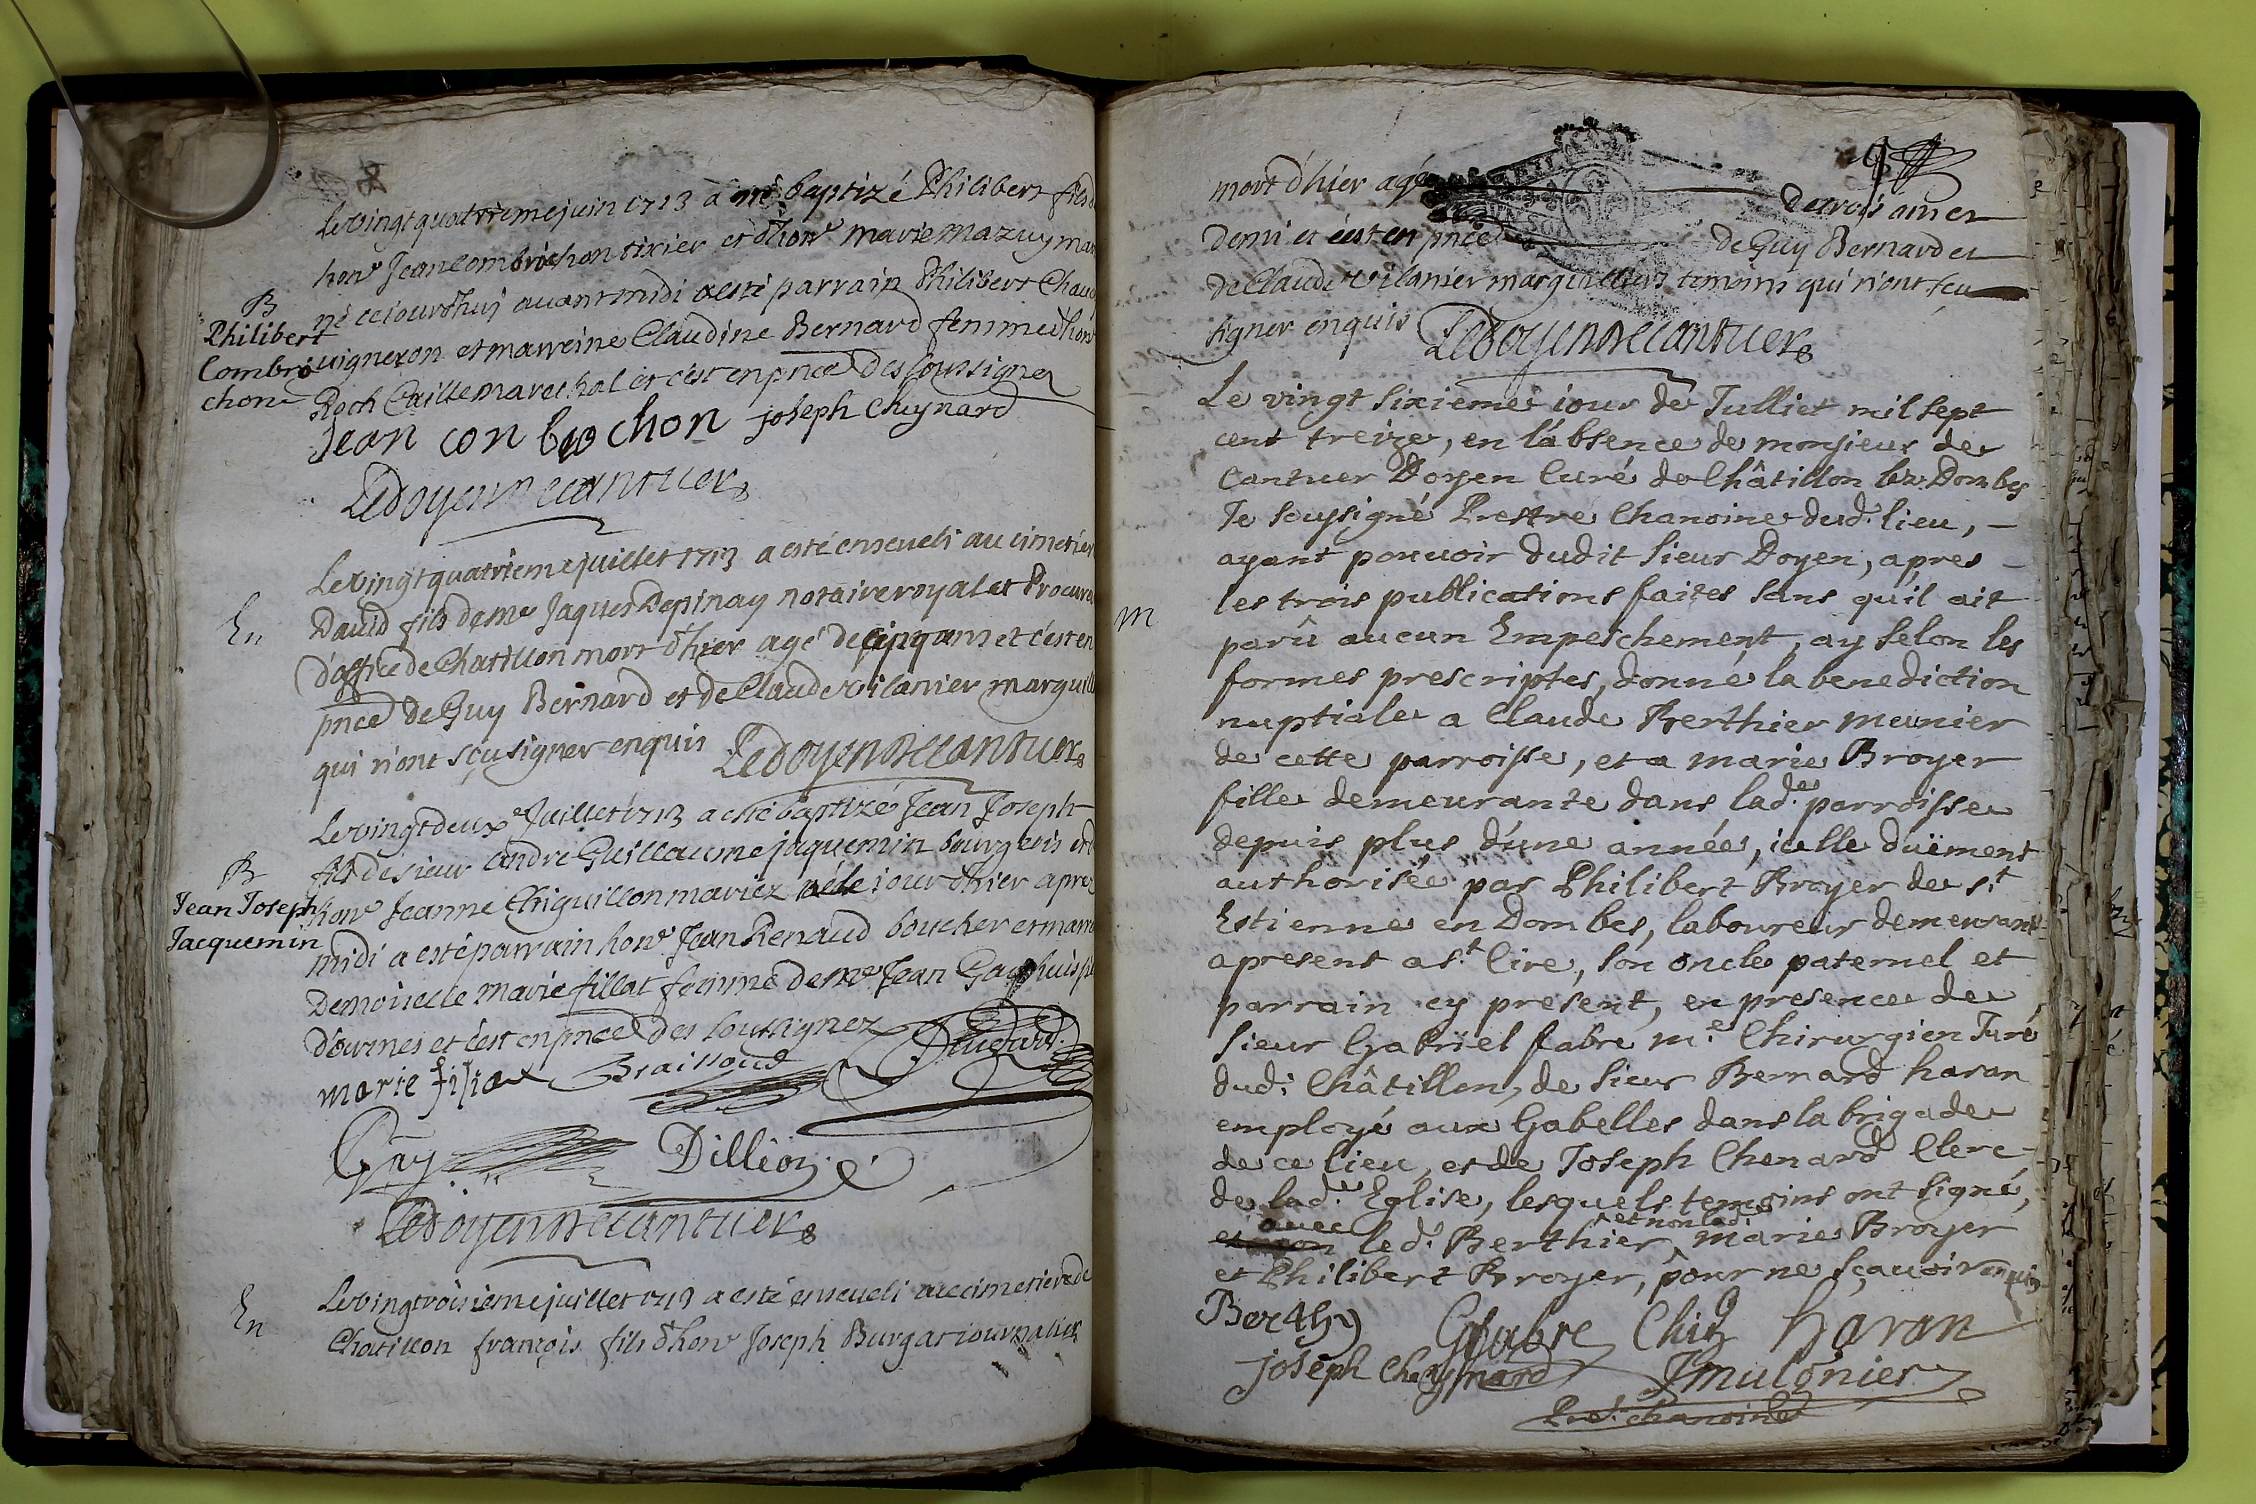 8
Le vingt quatrieme juin 1713 a été baptizé Philibert fils d
hon.e Jean Combrichon tixier et d'hon.e marie mazuy mar
né ce iourdhuy avant midi a esté parrain Philibert Chau
B
Philibert
Combri
chon
vigneron et marreine Claudine Bernard femme dhon
Roch Caille marechal et c'est en pnce des soussignez
Jean conbrochon joseph Chaynard
Ledoyen De cantuers
En
Le vingt quatrieme juillet 1713 a esté enseveli au cimetier
David fils de me Jaques Depinay notaire royal et Procure
d'office de Chatillon mort d'hier agé de cinq ans et c'est en
pnce de Guy Bernard et de Claude vilanier marguill
qui n'ont sçu signer enquis Ledoyen De cantuers
Le vingt deuxe Juillet 1713 a esté baptizé Jean Joseph
B
Jean Joseph
Jacquemin
fils de sieur andre Guillaume jaquemin bourgeois et d
hon.e Jeanne Chiguillon mariez né le iour d'hier apres
midi a esté parrain hon.e Jean Renaud boucher et marr
Demoiselle marie fillat femme de me Jean Gay huissie
d'ournes et c'est en pnce des soussignez
marie filia Braissoud
Gay Dillion
Ledoyen De cantuers
En
Le vingt troisieme juillet 1713 a esté enseveli au cimetiere de
Chatillon françois fils d'hon.e Joseph Burgat iournalier
9
mort d'hier agé de trois ans et
demi et c'est en pnce de Guy Bernard et
de Claude vilanier marguilliers temoins qui n'ont sçu
signer enquis Ledoyen De cantuers
M
Le vingt sixieme iour de Julliet mil sept
cent treize, en l'absence de monsieur de
Cantuer Doyen Curé de Châtillon lez Dombes
Je sousigné Prestre Chanoine dud. lieu, –
ayant pouvoir dudit sieur Doyen, apres –
les trois publications faites sans qu'il ait
parû aucun Empeschement, ay selon les
formes prescriptes, donné la benediction
nuptiale a Claude Berthier meunier
de cette parroisse, et a marie Broyer
fille demeurante dans lad.e parroisse
depuis plus d'une année, icelle duëment
authorisée par Philibert Broyer de st
Estienne en Dombes, laboureur demeurant
apresent a st Cire, son oncle paternel et
parrain cy present, en presence de
sieur Gabriel fabre m.e Chirurgien Juré
dud. Châtillon, de sieur Bernard haran
employé aux Gabelles dans la brigade
de ce lieu, et de Joseph Chenard Clerc
de lad.e Eglise, lesquels temoins ont signé,
avec led. Berthier, et non lad.e marie Broyer
et Philibert Broyer, pour ne sçavoir enquis
Berthy Gfabre Chir haran
joseph Chaynard Jmulonier
Pre. chanoine